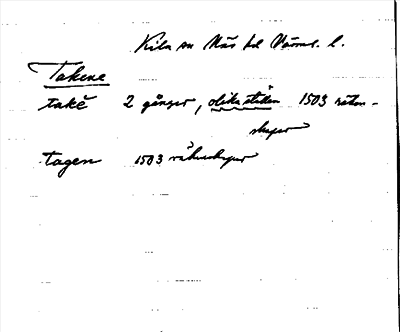 Kila sn Näs hd Värml. l.
Takene
takě 2 gånger, olika ställen 1503 räken-
skaper
tagen 1503 räkenskaper